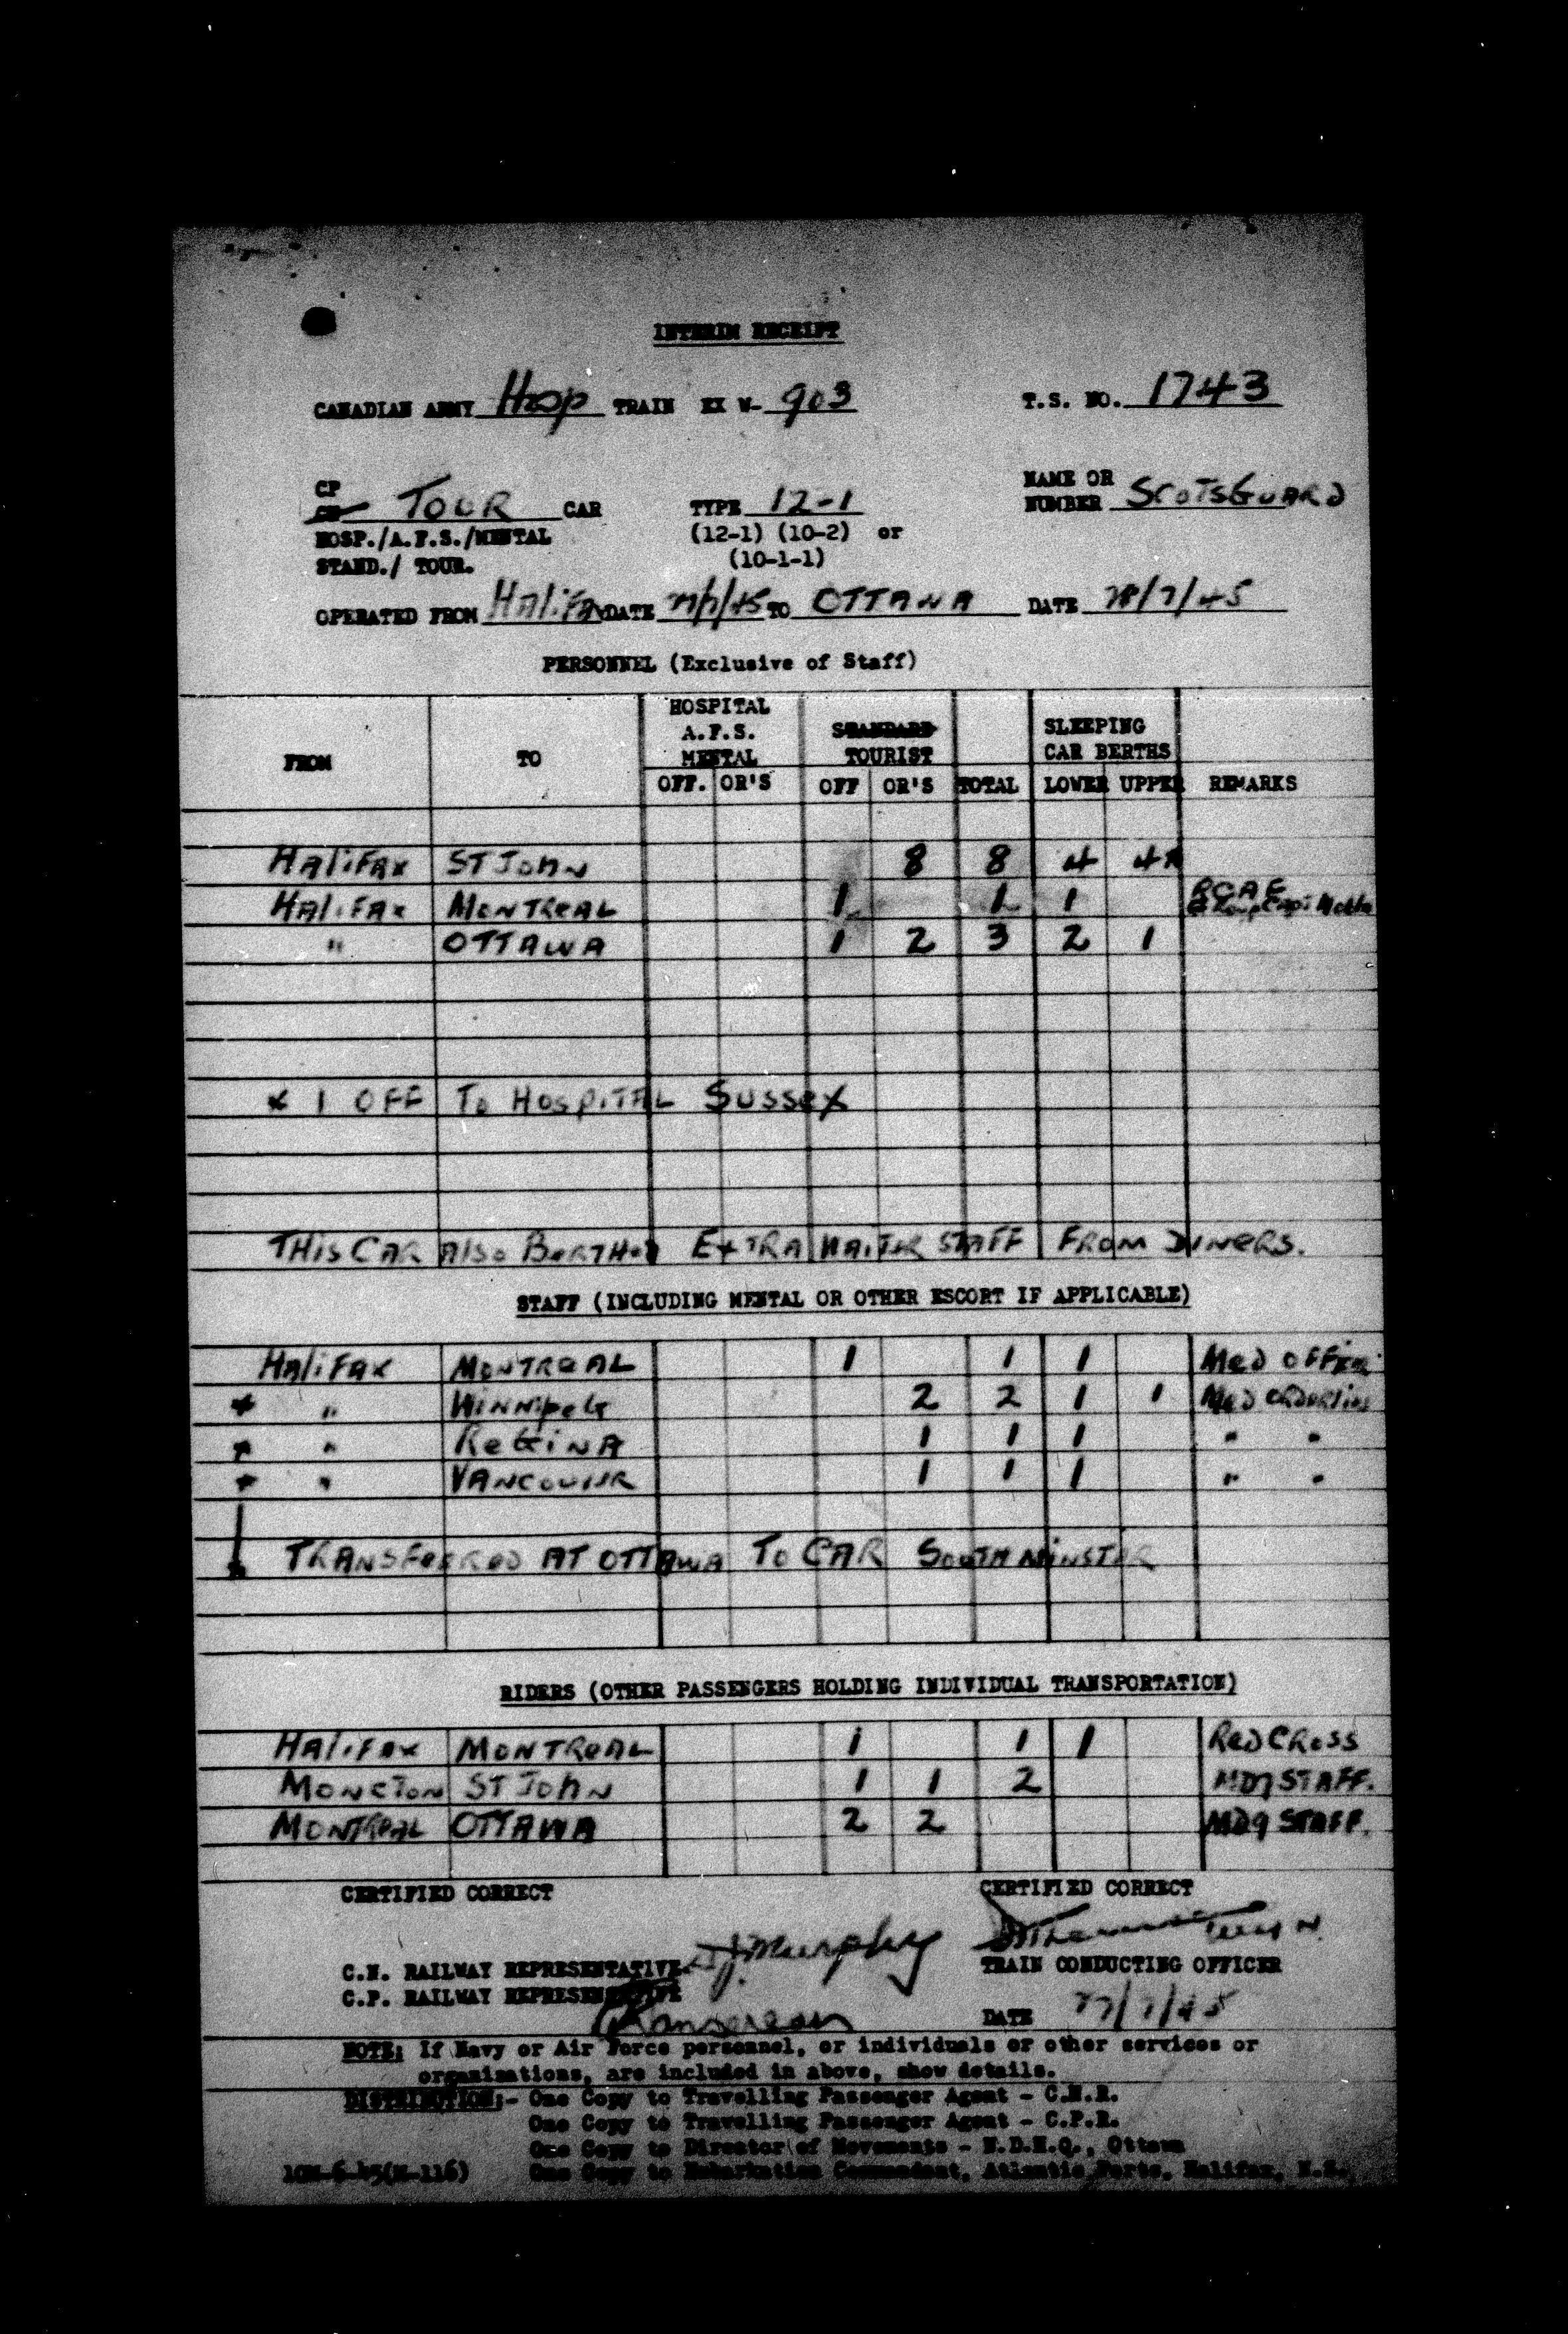 INTERIM RECEIPT
CANADIAN ARMY Hosp TRAIN EX W- 903 T.S. NO. 1743
CP
CN TOUR CAR TYPE 12-1 NAME OR NUMBER SCOTSGUARD
HOSP./A.F.S./MENTAL (12-1) (10-2) or
STAND./ TOUR. (10-1-1)
OPERATED FROM HALIFAX DATE 27/7/45 TO OTTAWA DATE 28/7/45
PERSONNEL (Exclusive of Staff)
FROM TO HOSPITAL A.F.S. MENTAL STANDARD TOURIST SLEEPING CAR BERTHS
OFF. OR'S OFF OR'S TOTAL LOWER UPPER REMARKS
HALIFAX ST JOHN 8 8 4 4*
HALIFAX MONTREAL 1 1 1 RCAF
" OTTAWA 1 2 3 2 1
* 1 OFF TO HOSPITAL SUSSEX
THIS CAR ALSO BERTHED EXTRA WAITER STAFF FROM DINERS.
STAFF (INCLUDING MENTAL OR OTHER ESCORT IF APPLICABLE)
HALIFAX MONTREAL 1 1 1 MED OFFICER
* " WINNIPEG 2 2 1 1 MED ORDERLIES
* " REGINA 1 1 1 " "
* " VANCOUVER 1 1 1 " "
TRANSFERRED AT OTTAWA TO CAR SOUTHMINSTER
RIDERS (OTHER PASSENGERS HOLDING INDIVIDUAL TRANSPORTATION)
HALIFAX MONTREAL 1 1 1 RED CROSS
MONCTON ST JOHN 1 1 2 MD7 STAFF.
MONTREAL OTTAWA 2 2 STAFF.
CERTIFIED CORRECT CERTIFIED CORRECT
C.N. RAILWAY REPRESENTATIVE Murphy TRAIN CONDUCTING OFFICER
C.P. RAILWAY REPRESENTATIVE
DATE 27/7/45
NOTE: If Navy or Air Force personnel, or individuals or other services or
organizations, are included in above, show details.
DISTRIBUTION:- One Copy to Travelling Passenger Agent - C.N.R.
One Copy to Travelling Passenger Agent - C.P.R.
One Copy to Director of Movements - N.D.H.Q., Ottawa
10M-6-45(M-116) One Copy to Embarkation Commandant, Atlantic Ports, Halifax, N.S.